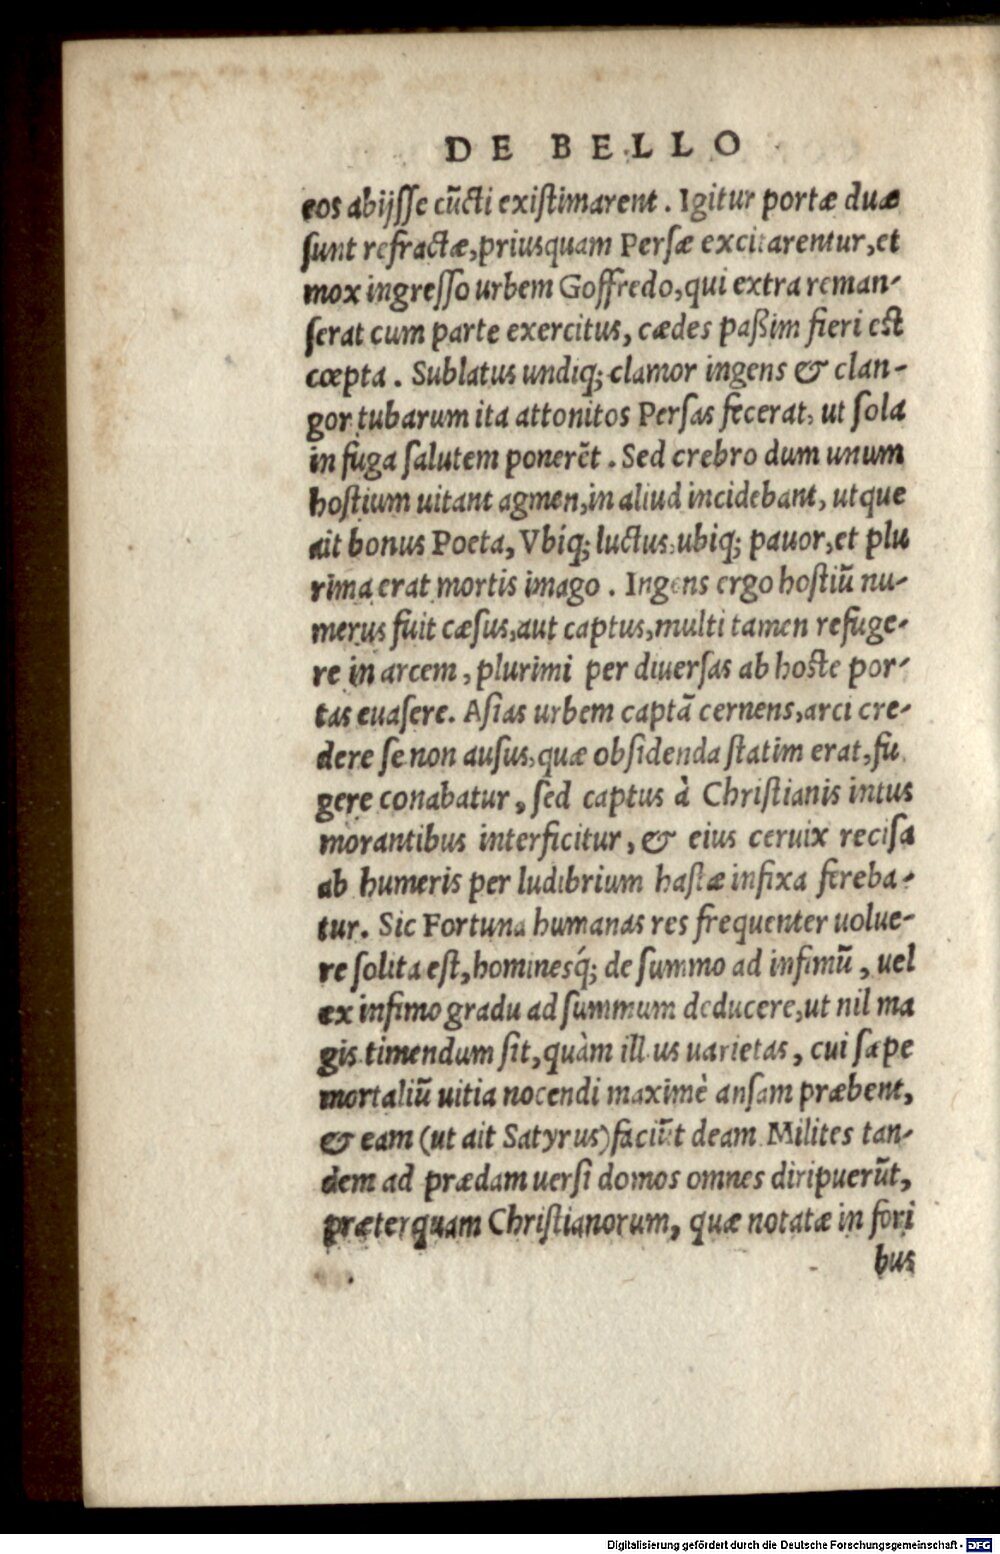 DE BELLO
eos abijsse cūcti existimarent. Igitur portæ duæ
sunt refractæ, priusquam Persæ excitarentur, et
mox ingresso urbem Goffredo, qui extra reman-
serat cum parte exercitus, cædes paßim fieri est
cœpta. Sublatus undiq; clamor ingens & clan-
gor tubarum ita attonitos Persas fecerat, ut sola
in fuga salutem ponerēt. Sed crebro dum unum
hostium uitant agmen, in aliud incidebant, utque
ait bonus Poeta, Vbiq; luctus, ubiq; pauor, et plu
rima erat mortis imago. Ingens ergo hostiū nu-
merus fuit cæsus, aut captus, multi tamen refuge-
re in arcem, plurimi per diuersas ab hoste por-
tas euasere. Asias urbem captā cernens, arci cre-
dere se non ausus, quæ obsidenda statim erat, fu
gere conabatur, sed captus à Christianis intus
morantibus interficitur, & eius ceruix recisa
ab humeris per ludibrium hastæ infixa fereba-
tur. Sic Fortuna humanas res frequenter uolue-
re solita est, hominesq́; de summo ad infimū, uel
ex infimo gradu ad summum deducere, ut nil ma
gis timendum sit, quàm illius uarietas, cui sæpe
mortaliū uitia nocendi maximè ansam præbent,
& eam (ut ait Satyrus) faciūt deam. Milites tan-
dem ad prædam uersi domos omnes diripuerūt,
præterquam Christianorum, quæ notatæ in fori
bus
Digitalisierung gefördert durch die Deutsche Forschungsgemeinschaft - DFG